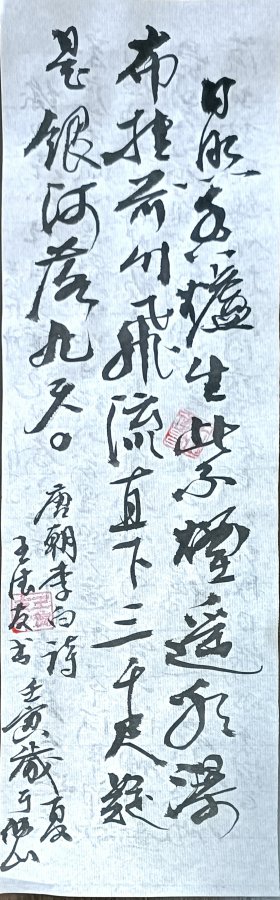 日照香爐生紫煙遥看瀑
布挂前川飛流直下三千尺疑
是銀河落九天。
唐朝李白詩
王友书 壬寅歲夏于山